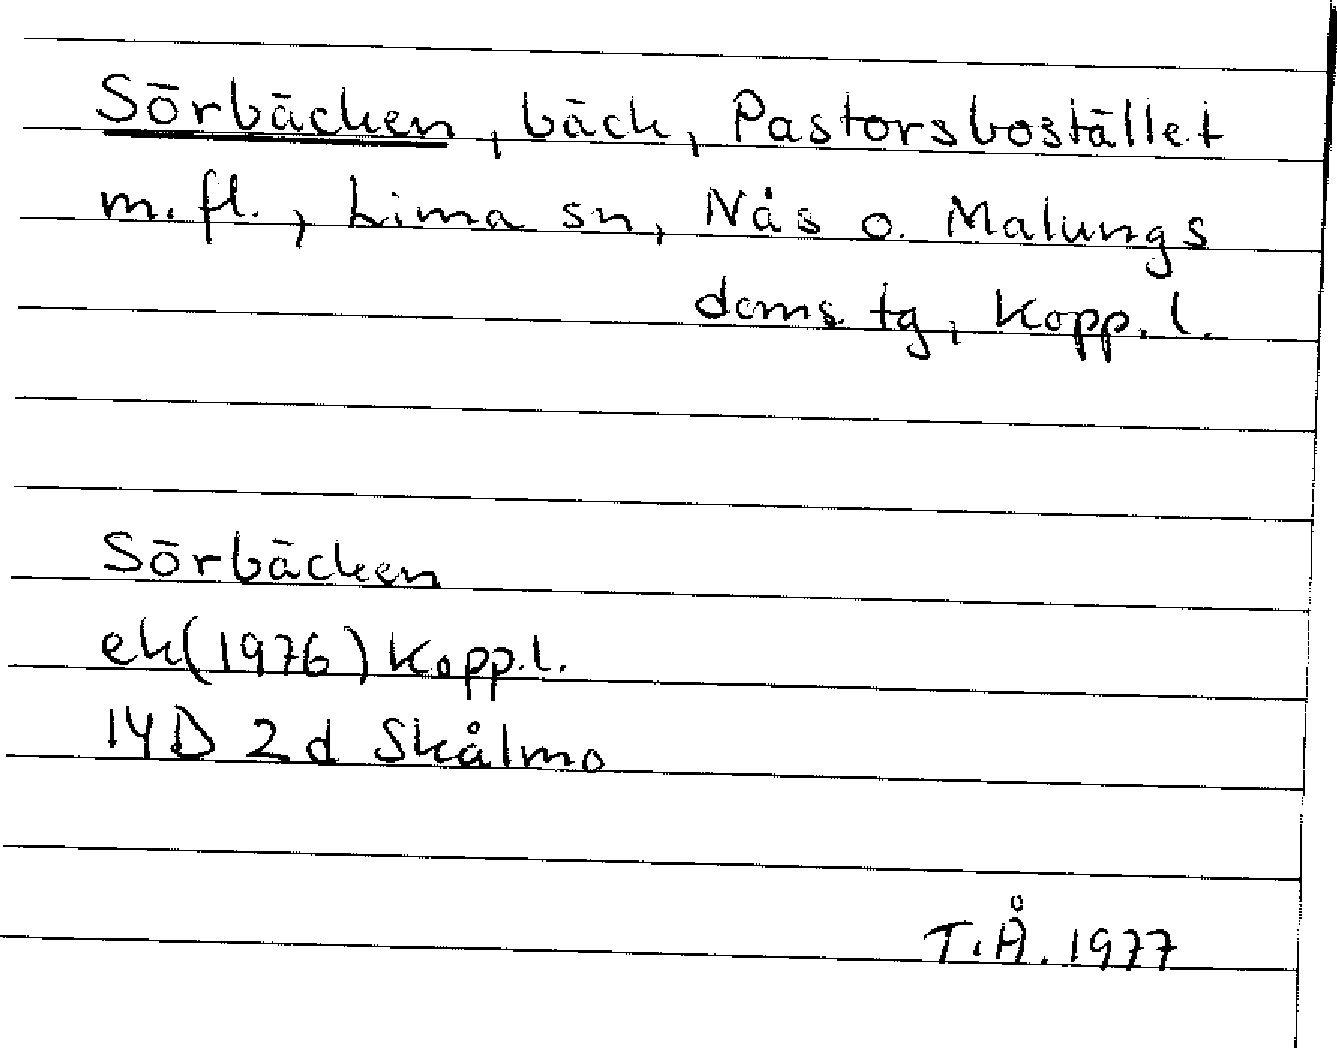 Sörbäcken, bäck, Pastorsbostället
m.fl., Lima sn, Nås o. Malungs
doms tg, Kopp. l.
Sörbäcken
ek(1976) Kopp.l.
14D 2d Skålmo
T.Å. 1977